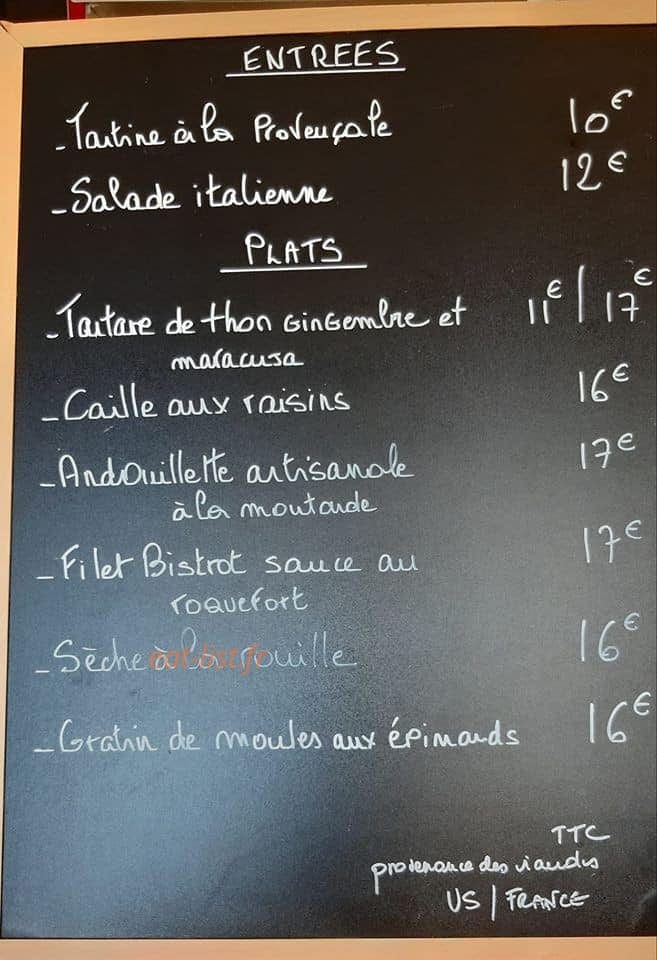 ENTREES
- Tartine à la Provençale 10€
- Salade italienne 12€
PLATS
- Tartare de thon Gingembre et 11€ / 17€
maracusa
- Caille aux raisins 16€
- Andouillette artisanale 17€
à la moutarde
- Filet Bistrot sauce au 17€
roquefort
- Sèche à la rouille 16€
- Gratin de moules aux épinards 16€
TTC
provenance des viandes
US / FRANCE